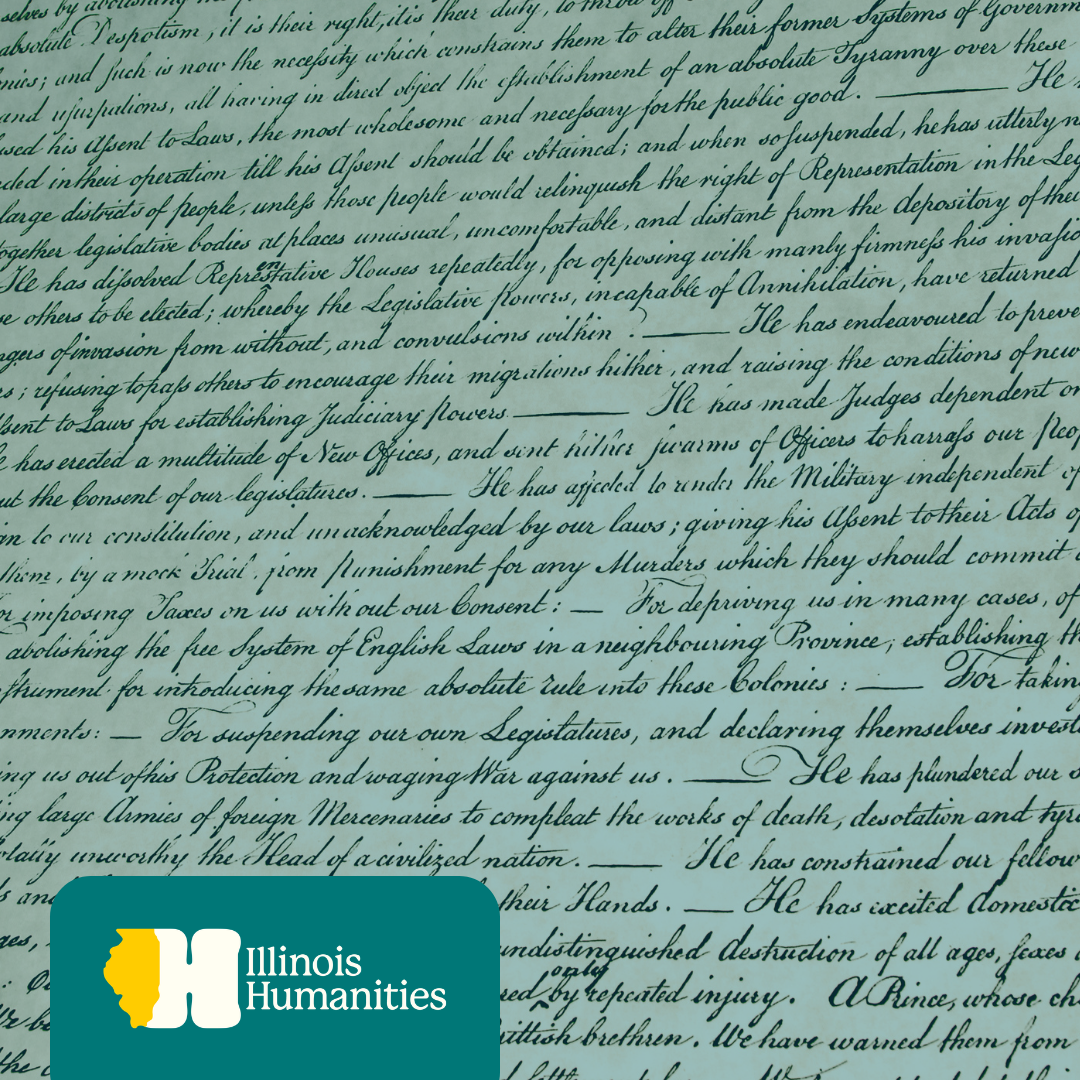 selves by abolishing
absolute Despotism, it is their right, it is their duty, to throw off
onies; and such is now the necessity which constrains them to alter their former Systems of Governm
and usurpations, all having in direct object the establishment of an absolute Tyranny over these
used his Assent to Laws, the most wholesome and necessary for the public good. ——— He
nded in their operation till his Assent should be obtained; and when so suspended, he has utterly n
large districts of people, unless those people would relinquish the right of Representation in the Leg
together legislative bodies at places unusual, uncomfortable, and distant from the depository of thei
He has dissolved Representative Houses repeatedly, for opposing with manly firmness his invasio
se others to be elected; whereby the Legislative powers, incapable of Annihilation, have returned
ngers of invasion from without, and convulsions within. ——— He has endeavoured to preve
rs; refusing to pass others to encourage their migrations hither, and raising the conditions of new
ssent to Laws for establishing Judiciary powers. ——— He has made Judges dependent on
e has erected a multitude of New Offices, and sent hither swarms of Officers to harrass our Peop
ut the Consent of our legislatures. ——— He has affected to render the Military independent of
gn to our constitution, and unacknowledged by our laws; giving his Assent to their Acts of
them, by a mock Trial, from Punishment for any Murders which they should commit
or imposing Taxes on us without our Consent: — For depriving us in many cases, of
abolishing the free System of English Laws in a neighbouring Province, establishing th
strument for introducing the same absolute rule into these Colonies: — For taking
nments: — For suspending our own Legislatures, and declaring themselves invest
ing us out of his Protection and waging War against us. ——— He has plundered our s
ing large Armies of foreign Mercenaries to compleat the works of death, desolation and tyra
otally unworthy the Head of a civilized nation. ——— He has constrained our fellow
s and their Hands. — He has excited domestic
ges, undistinguished destruction of all ages, sexes
red only by repeated injury. A Prince, whose ch
We b rittish brethren. We have warned them from
the
Illinois
Humanities